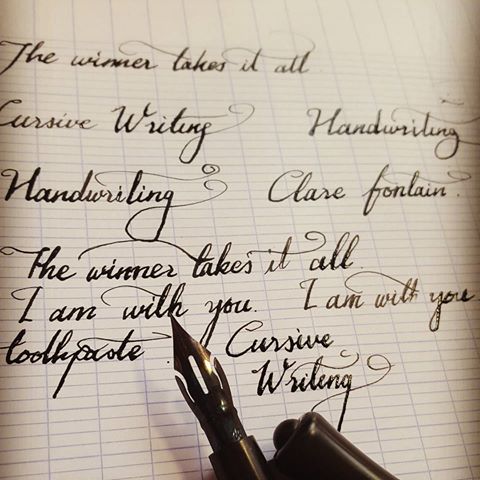 The winner takes it all
Cursive Writing Handwriting
Handwriting Clare fontain.
The winner takes it all
I am with you. I am with you
toothpaste Cursive
Writing